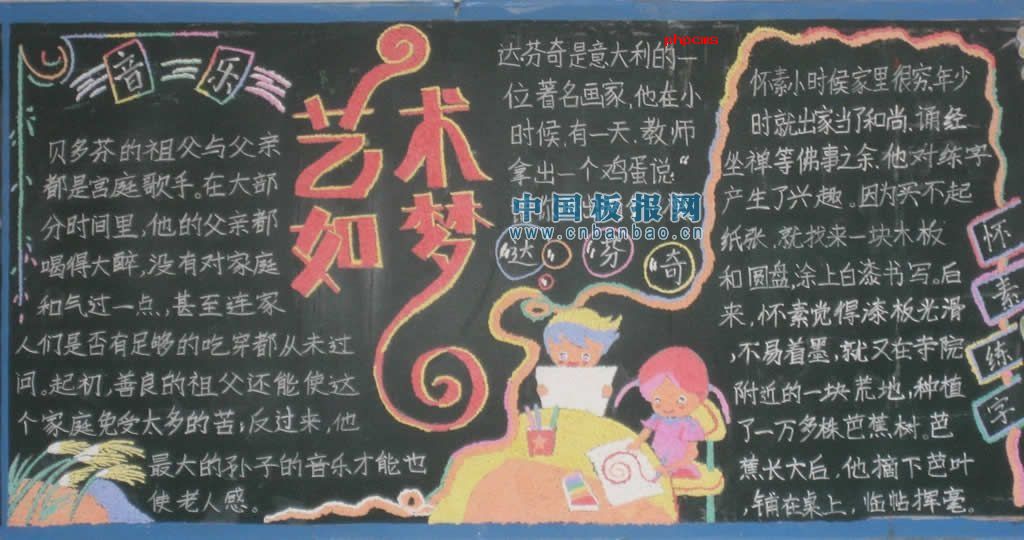 音乐
贝多芬的祖父与父亲
都是宫庭歌手。在大部
分时间里,他的父亲都
喝得大醉,没有对家庭
和气过一点,甚至连家
人们是否有足够的吃穿都从未过
问。起初,善良的祖父还能使这
个家庭免受太多的苦;反过来,他
最大的孙子的音乐才能也
使老人感。
艺术
如梦
phpcms
达芬奇是意大利的一
位著名画家,他在小
时候,有一天,教师
拿出一个鸡蛋说:“
中国板报网
www.cnbanbao.cn
达芬奇
怀素小时候家里很穷,年少
时就出家当了和尚,诵经
坐禅等佛事之余,他对练字
产生了兴趣。因为买不起
纸张,就找来一块木板
和圆盘,涂上白漆书写。后
来,怀素觉得漆板光滑
,不易着墨,就又在寺院
附近的一块荒地,种植
了一万多株芭蕉树。芭
蕉长大后,他摘下芭叶
,铺在桌上,临帖挥毫。
怀素练字